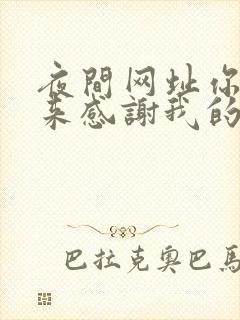 夜間网址你
来感謝我的
巴拉克奥巴馬